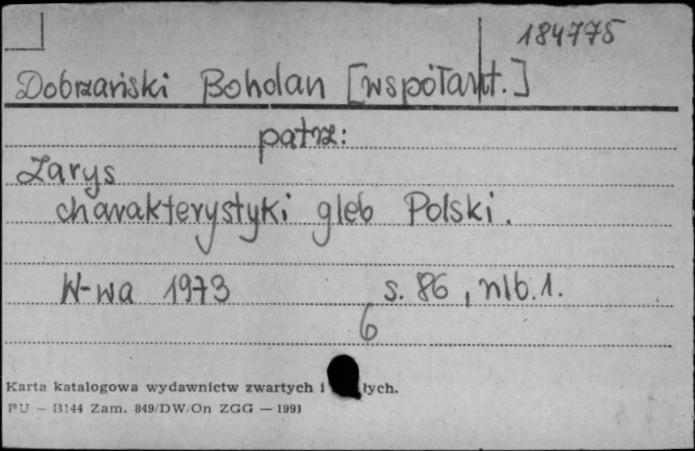 184775
Dobrzański Bohdan [współaut.]
patrz:
Zarys
charakterystyki gleb Polski.
W-wa 1973 s. 86, nlb. 1.
6
Karta katalogowa wydawnictw zwartych i łych.
PU — B144 Zam. 849/DW/On ZGG — 1991